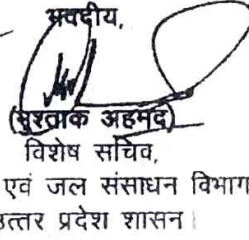 भवदीय,
(मुश्ताक अहमद)
विशेष सचिव,
एवं जल संसाधन विभाग
उत्तर प्रदेश शासन।